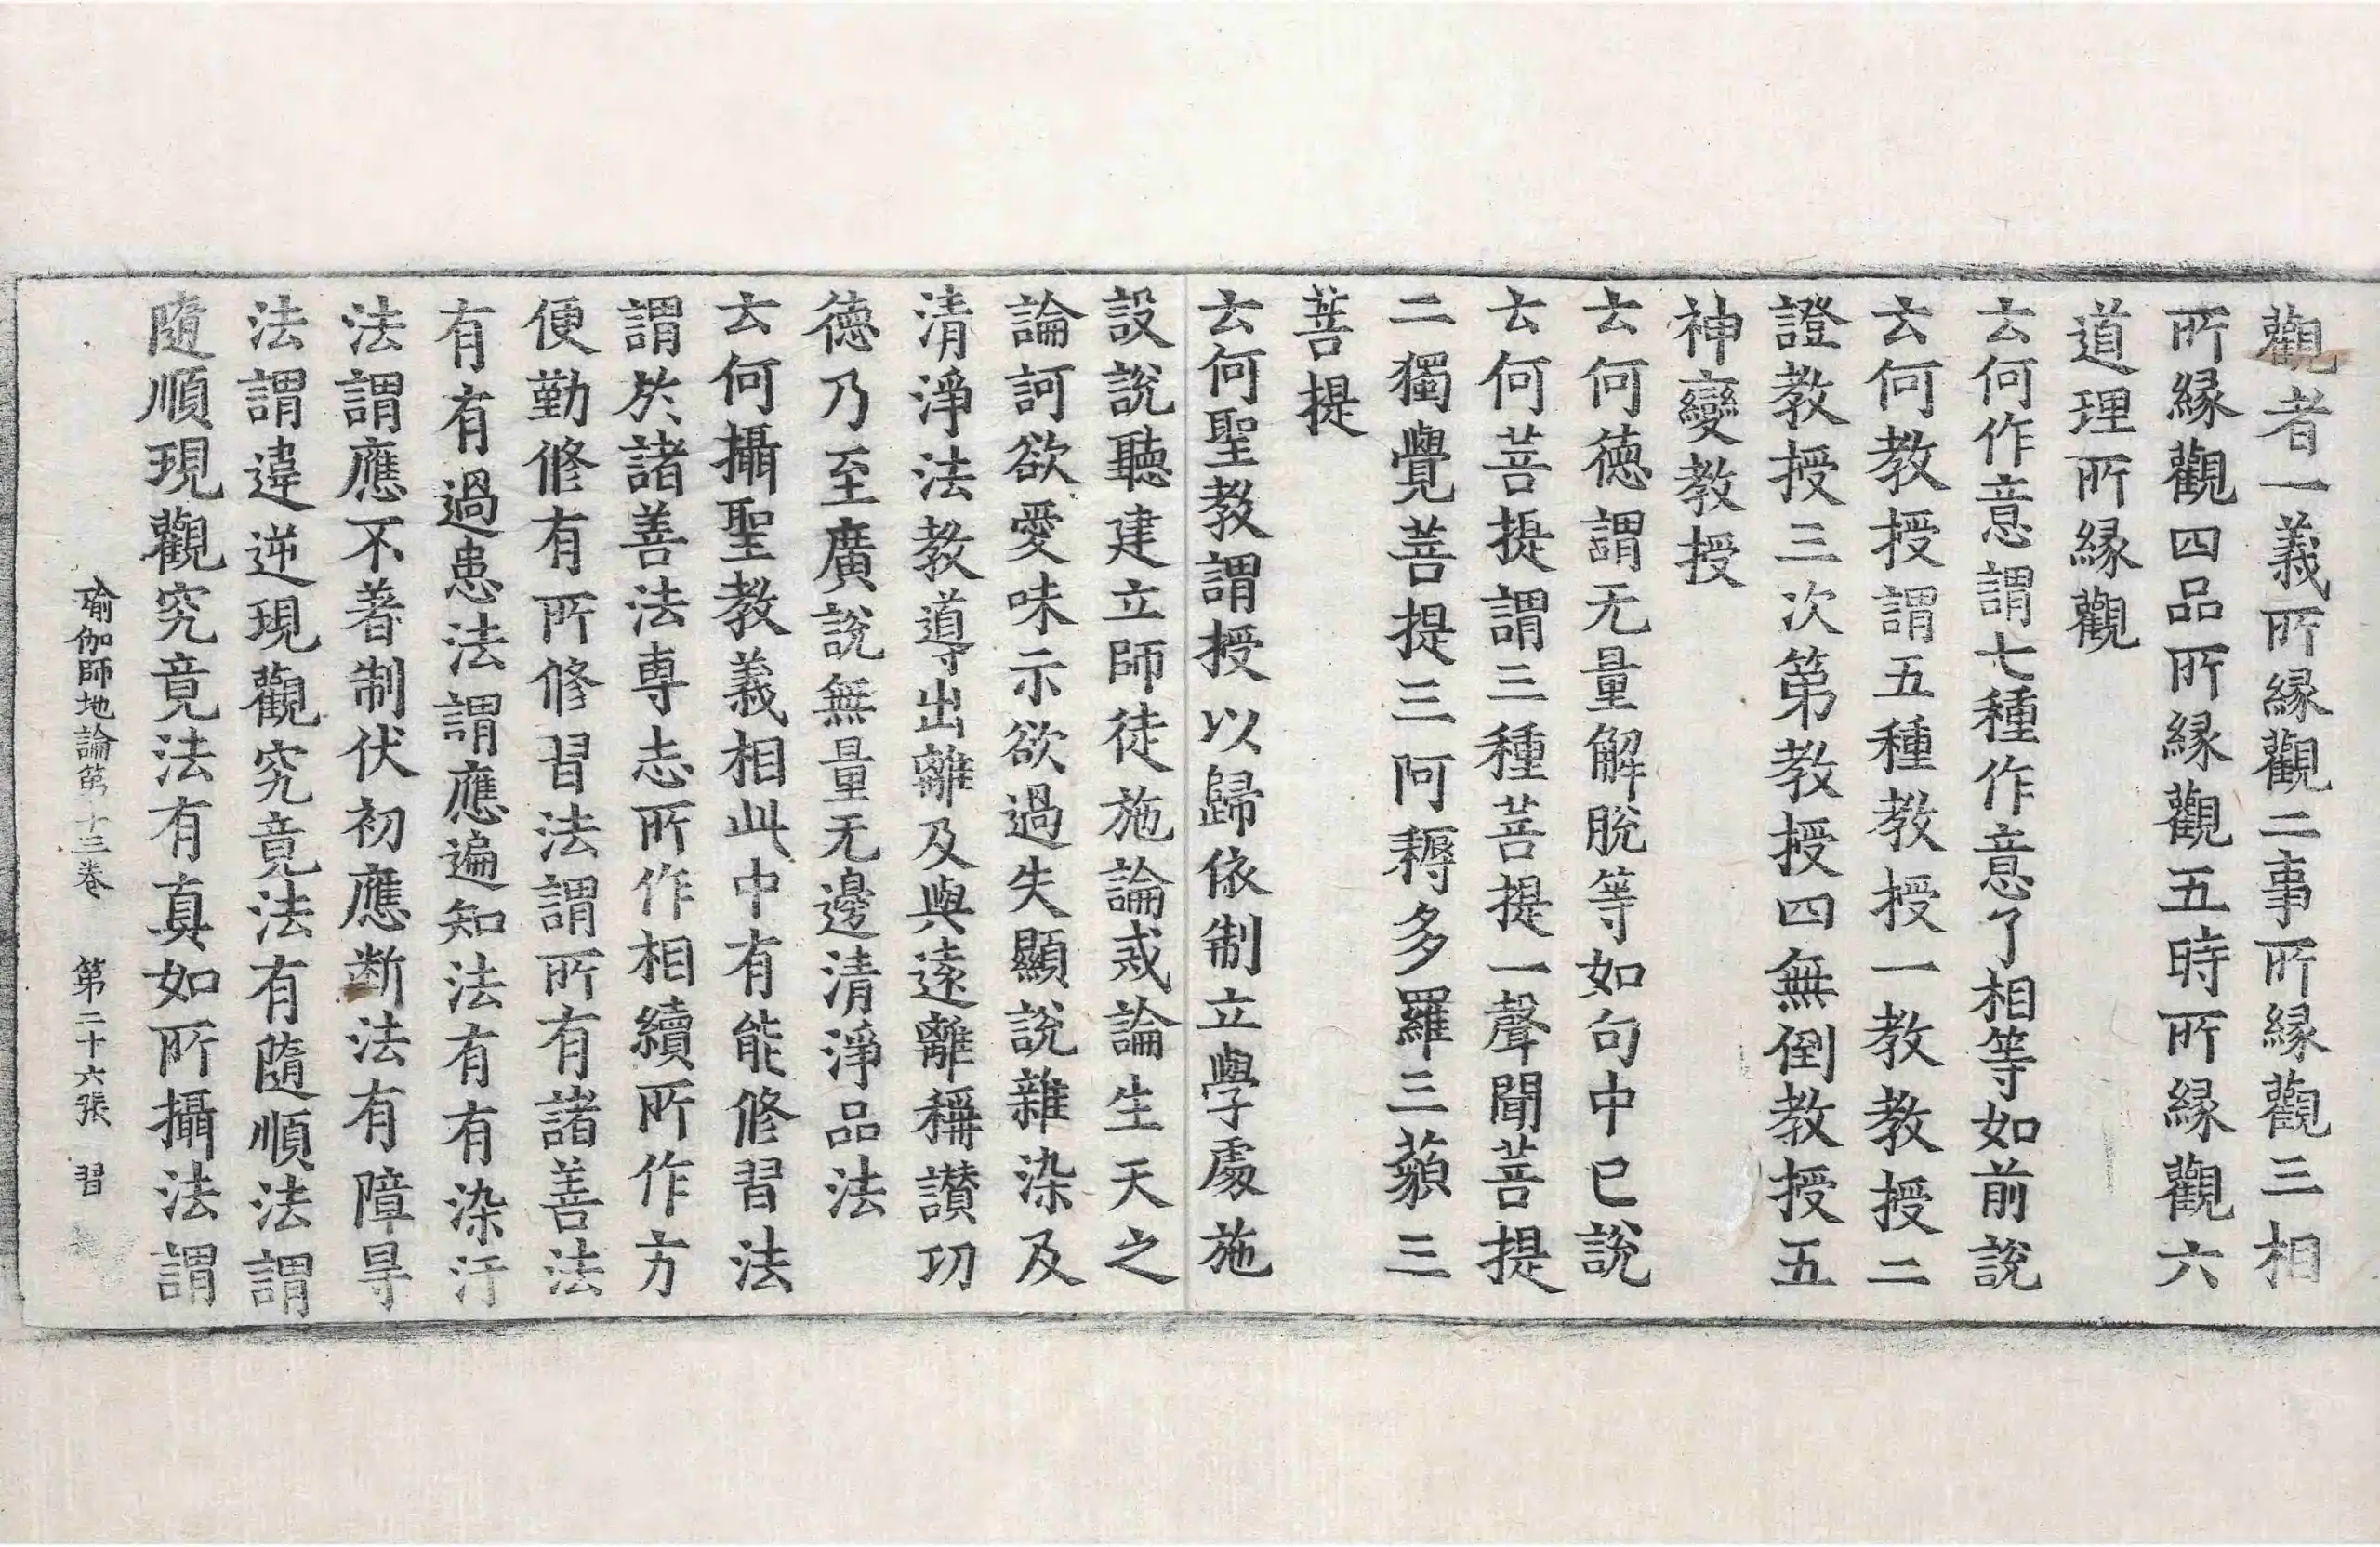 觀者一義所縁觀二事所縁觀三相
所縁觀四品所縁觀五時所縁觀六
道理所縁觀
云何作意謂七種作意了相等如前說
云何教授謂五種教授一教教授二
證教授三次第教授四無倒教授五
神變教授
云何德謂无量解脫等如句中已說
云何菩提謂三種菩提一聲聞菩提
二獨覺菩提三阿耨多羅三藐三
菩提
云何聖教謂授以歸依制立學處施
設說聽建立師徒施論戒論生天之
論訶欲愛味示欲過失顯說雜染及
清淨法教導出離及與遠離稱讚功
德乃至廣說無量无邊清淨品法
云何攝聖教義相此中有能修習法
謂於諸善法專志所作相續所作方
便勤修有所修習法謂所有諸善法
有有過患法謂應遍知法有有染汙
法謂應不著制伏初應断法有障㝵
法謂違逆現觀究竟法有隨順法謂
隨順現觀究竟法有真如所攝法謂
瑜伽師地論第十三卷 第二十六張 習